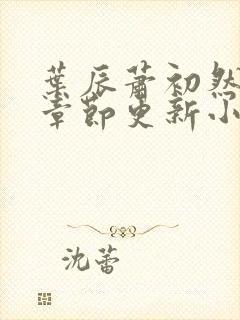 葉辰蕭初然
章節更新小
沈蕾